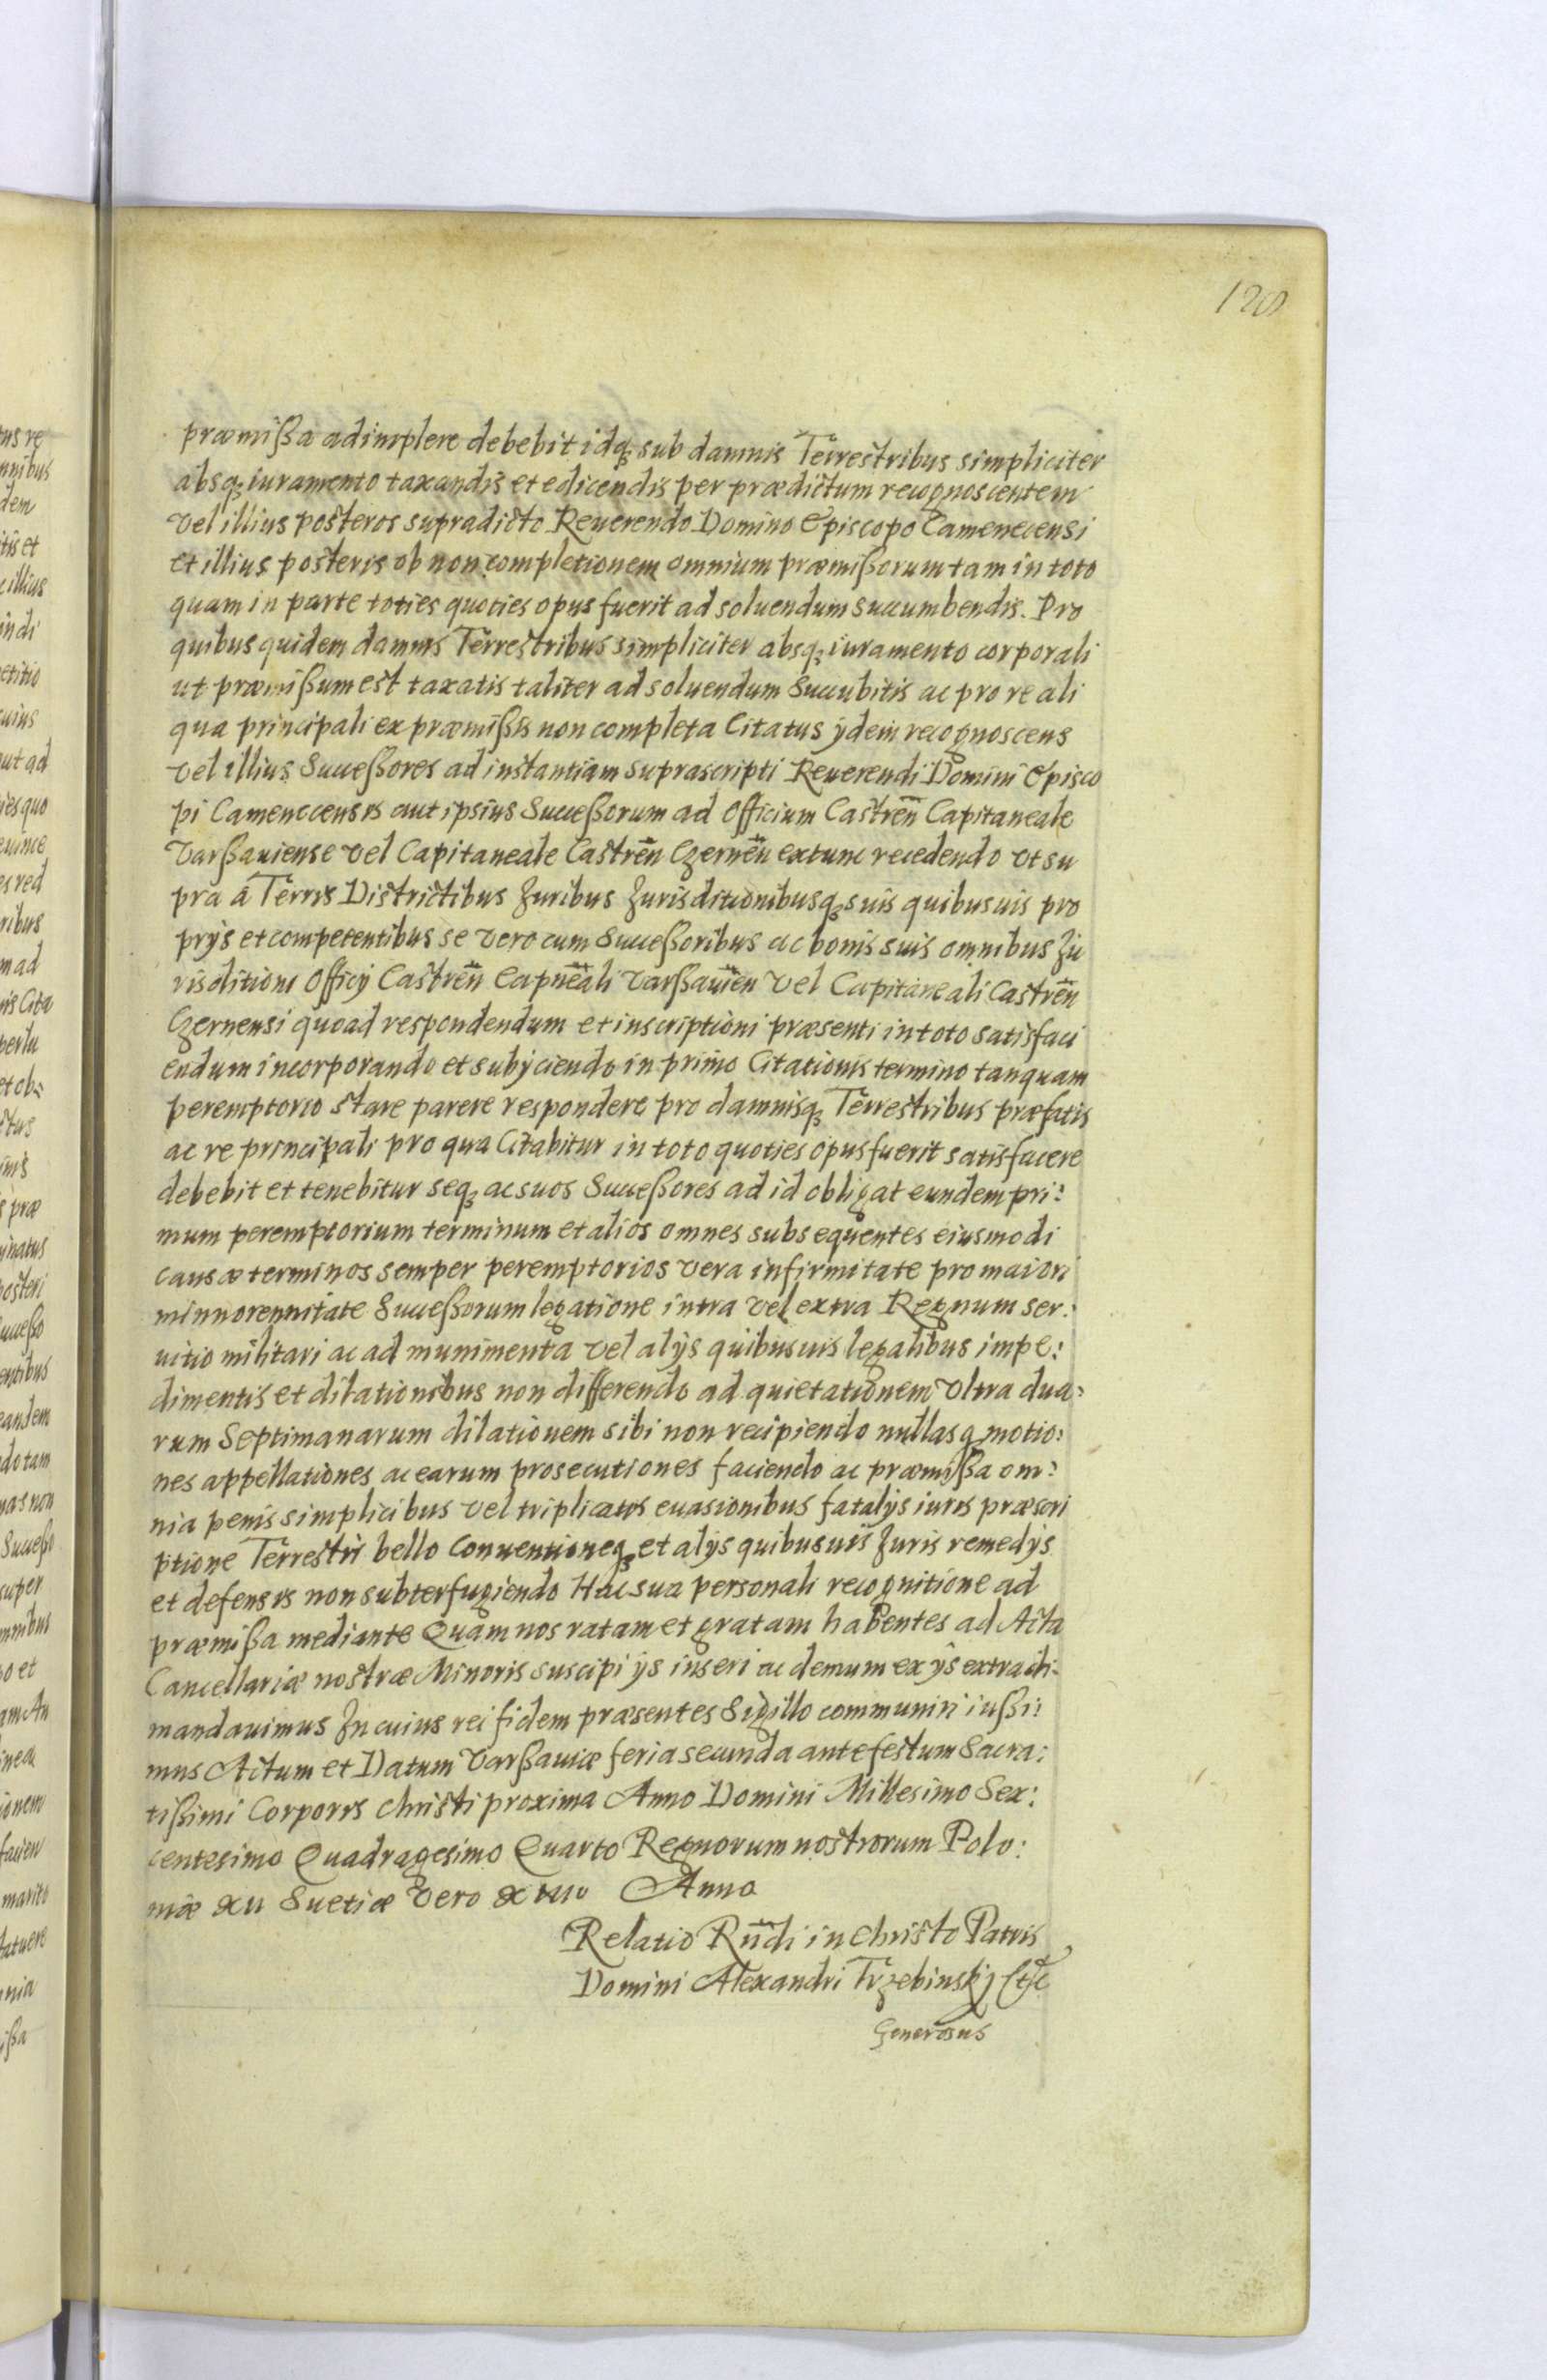 128
præmißa adimplere debebit idq₃ sub damnis Terrestribus simpliciter
absq₃ iuramento taxandis et edicendis per prædictum recognoscentem
vel illius posteros supradicto Reuerendo Domino Episcopo Camenecensi
et illius posteris ob non completionem omnium præmißorum tam in toto
quam in parte toties quoties opus fuerit ad soluendum succumbendis. Pro
quibus quidem damnis Terrestribus simpliciter absq₃ iuramento corporali
ut præmißum est taxatis taliter ad soluendum Succubitis ac pro re ali
qua principali ex præmißis non completa Citatus ÿdem recognoscens
vel illius Succeßores ad instantiam suprascripti Reuerendi Domini Episco
pi Camenecensis aut ipsius Succeßorum ad Officium Castren̄ Capitaneale
Varßauiense vel Capitaneale Castren̄ Czernen̄ extunc recedendo vt su
pra á Terris Districtibus Juribus Jurisditionibusq₃ suis quibusuis pro
prÿs et competentibus se vero cum Succeßoribus ac bonis suis omnibus Ju
risditioni Officÿ Castren̄ Capn̄eali Varßauien̄ vel Capitaneali Castren̄
Czernensi quoad respondendum et inscriptioni præsenti in toto satisfaci
endum incorporando et subÿciendo in primo Citationis termino tanquam
peremptorio stare parere respondere pro damnisq₃ Terrestribus præfatis
ac re principali pro qua Citabitur in toto quoties opus fuerit satisfacere
debebit et tenebitur seq₃ ac suos Succeßores ad id obligat eundem pri:
mum peremptorium terminum et alios omnes subsequentes eiusmodi
causæ terminos semper peremptorios vera infirmitate pro maiori
minnorennitate Succeßorum legatione intra vel extra Regnum ser:
uitio militari ac ad munimenta vel alÿs quibusuis legalibus impe:
dimentis et dilationibus non differendo ad quietationem vltra dua:
rum Septimanarum dilationem sibi non recipiendo nullasq₃ motio:
nes appellationes ac earum prosecutiones faciendo ac præmißa om:
nia penis simplicibus vel triplicatis euasionibus fatalÿs iuris præscri
ptione Terrestri bello Conuentioneq₃ et alÿs quibusuis Juris remedÿs
et defensis non subterfugiendo Hac sua personali recognitione ad
præmißa mediante Quam nos ratam et gratam habentes ad Acta
Cancellariæ nostræ Minoris suscipi ÿs inseri ac demum ex ÿs extradi:
mandauimus In cuius rei fidem præsentes Sigillo communiri iußi:
mus Actum et Datum Varßauiæ feria secunda ante festum Sacra:
tißimi Corporis Christi proxima Anno Domini Millesimo Sex:
centesimo Quadragesimo Quarto Regnorum nostrorum Polo:
niæ XII Suetiæ vero XIII Anno
Relatio Rn̄di in Christo Patris
Domini Alexandri Trzebinskÿ Etc
Generosus